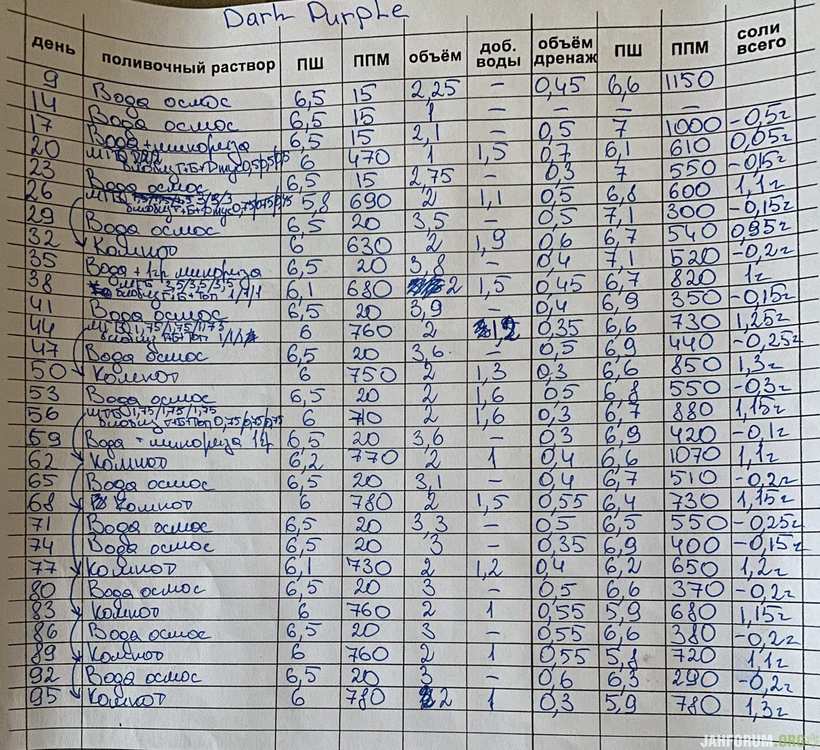 Dark Purple
день поливочный раствор ПШ ППМ объём доб. воды объём дренаж ПШ ППМ соли всего
9 Вода осмос 6,5 15 2,25 – 0,45 6,6 1150
14 Вода осмос 6,5 15 1 – – – –
17 Вода + микориза 6,5 15 2,1 – 0,5 7 1000 -0,5г
20 6 470 1 1,5 0,7 6,1 610 0,05г
23 Вода осмос 6,5 15 2,75 – 0,3 7 550 -0,15г
26 5,8 690 2 1,1 0,5 6,8 600 1,1г
29 Вода осмос 6,5 20 3,5 – 0,5 7,1 300 -0,15г
32 Компот 6 630 2 1,9 0,6 6,7 540 0,95г
35 Вода + 1гр микориза 6,5 20 3,8 – 0,4 7,1 520 -0,2г
38 МГБ 3,5/3,5/3,5 биобиз Г+Б+Топ 1/1/1 6,1 680 2 1,5 0,45 6,7 820 1г
41 Вода осмос 6,5 20 3,9 – 0,4 6,9 350 -0,15г
44 МГБ 1,75/1,75/1,75 биобиз Г+Б+Топ 1/1/1 6 760 2 1,2 0,35 6,6 730 1,25г
47 Вода осмос 6,5 20 3,6 – 0,5 6,9 440 -0,25г
50 Компот 6 750 2 1,3 0,3 6,6 850 1,3г
53 Вода осмос 6,5 20 2 1,6 05 6,8 550 -0,3г
56 МГБ 1,75/1,75/1,75 биобиз Г+Б+Топ 0,75/0,75/0,75 6 710 2 1,6 0,3 6,7 880 1,15г
59 Вода + микориза 1г 6,5 20 3,6 – 0,3 6,9 420 -0,1г
62 Компот 6,2 770 2 1 0,4 6,6 1070 1,1г
65 Вода осмос 6,5 20 3,1 – 0,4 6,7 510 -0,2г
68 Компот 6 780 2 1,5 0,55 6,4 730 1,15г
71 Вода осмос 6,5 20 3,3 – 0,5 6,5 550 -0,25г
74 Вода осмос 6,5 20 3 – 0,35 6,9 400 -0,15г
77 Компот 6,1 730 2 1,2 0,4 6,2 650 1,2г
80 Вода осмос 6,5 20 3 – 0,5 6,6 370 -0,2г
83 Компот 6 760 2 1 0,55 5,9 680 1,15г
86 Вода осмос 6,5 20 3 – 0,55 6,6 380 -0,2г
89 Компот 6 760 2 1 0,55 5,8 720 1,1г
92 Вода осмос 6,5 20 3 – 0,6 6,3 290 -0,2г
95 Компот 6 780 2 1 0,3 5,9 780 1,3г
JAHFORUM.ORG